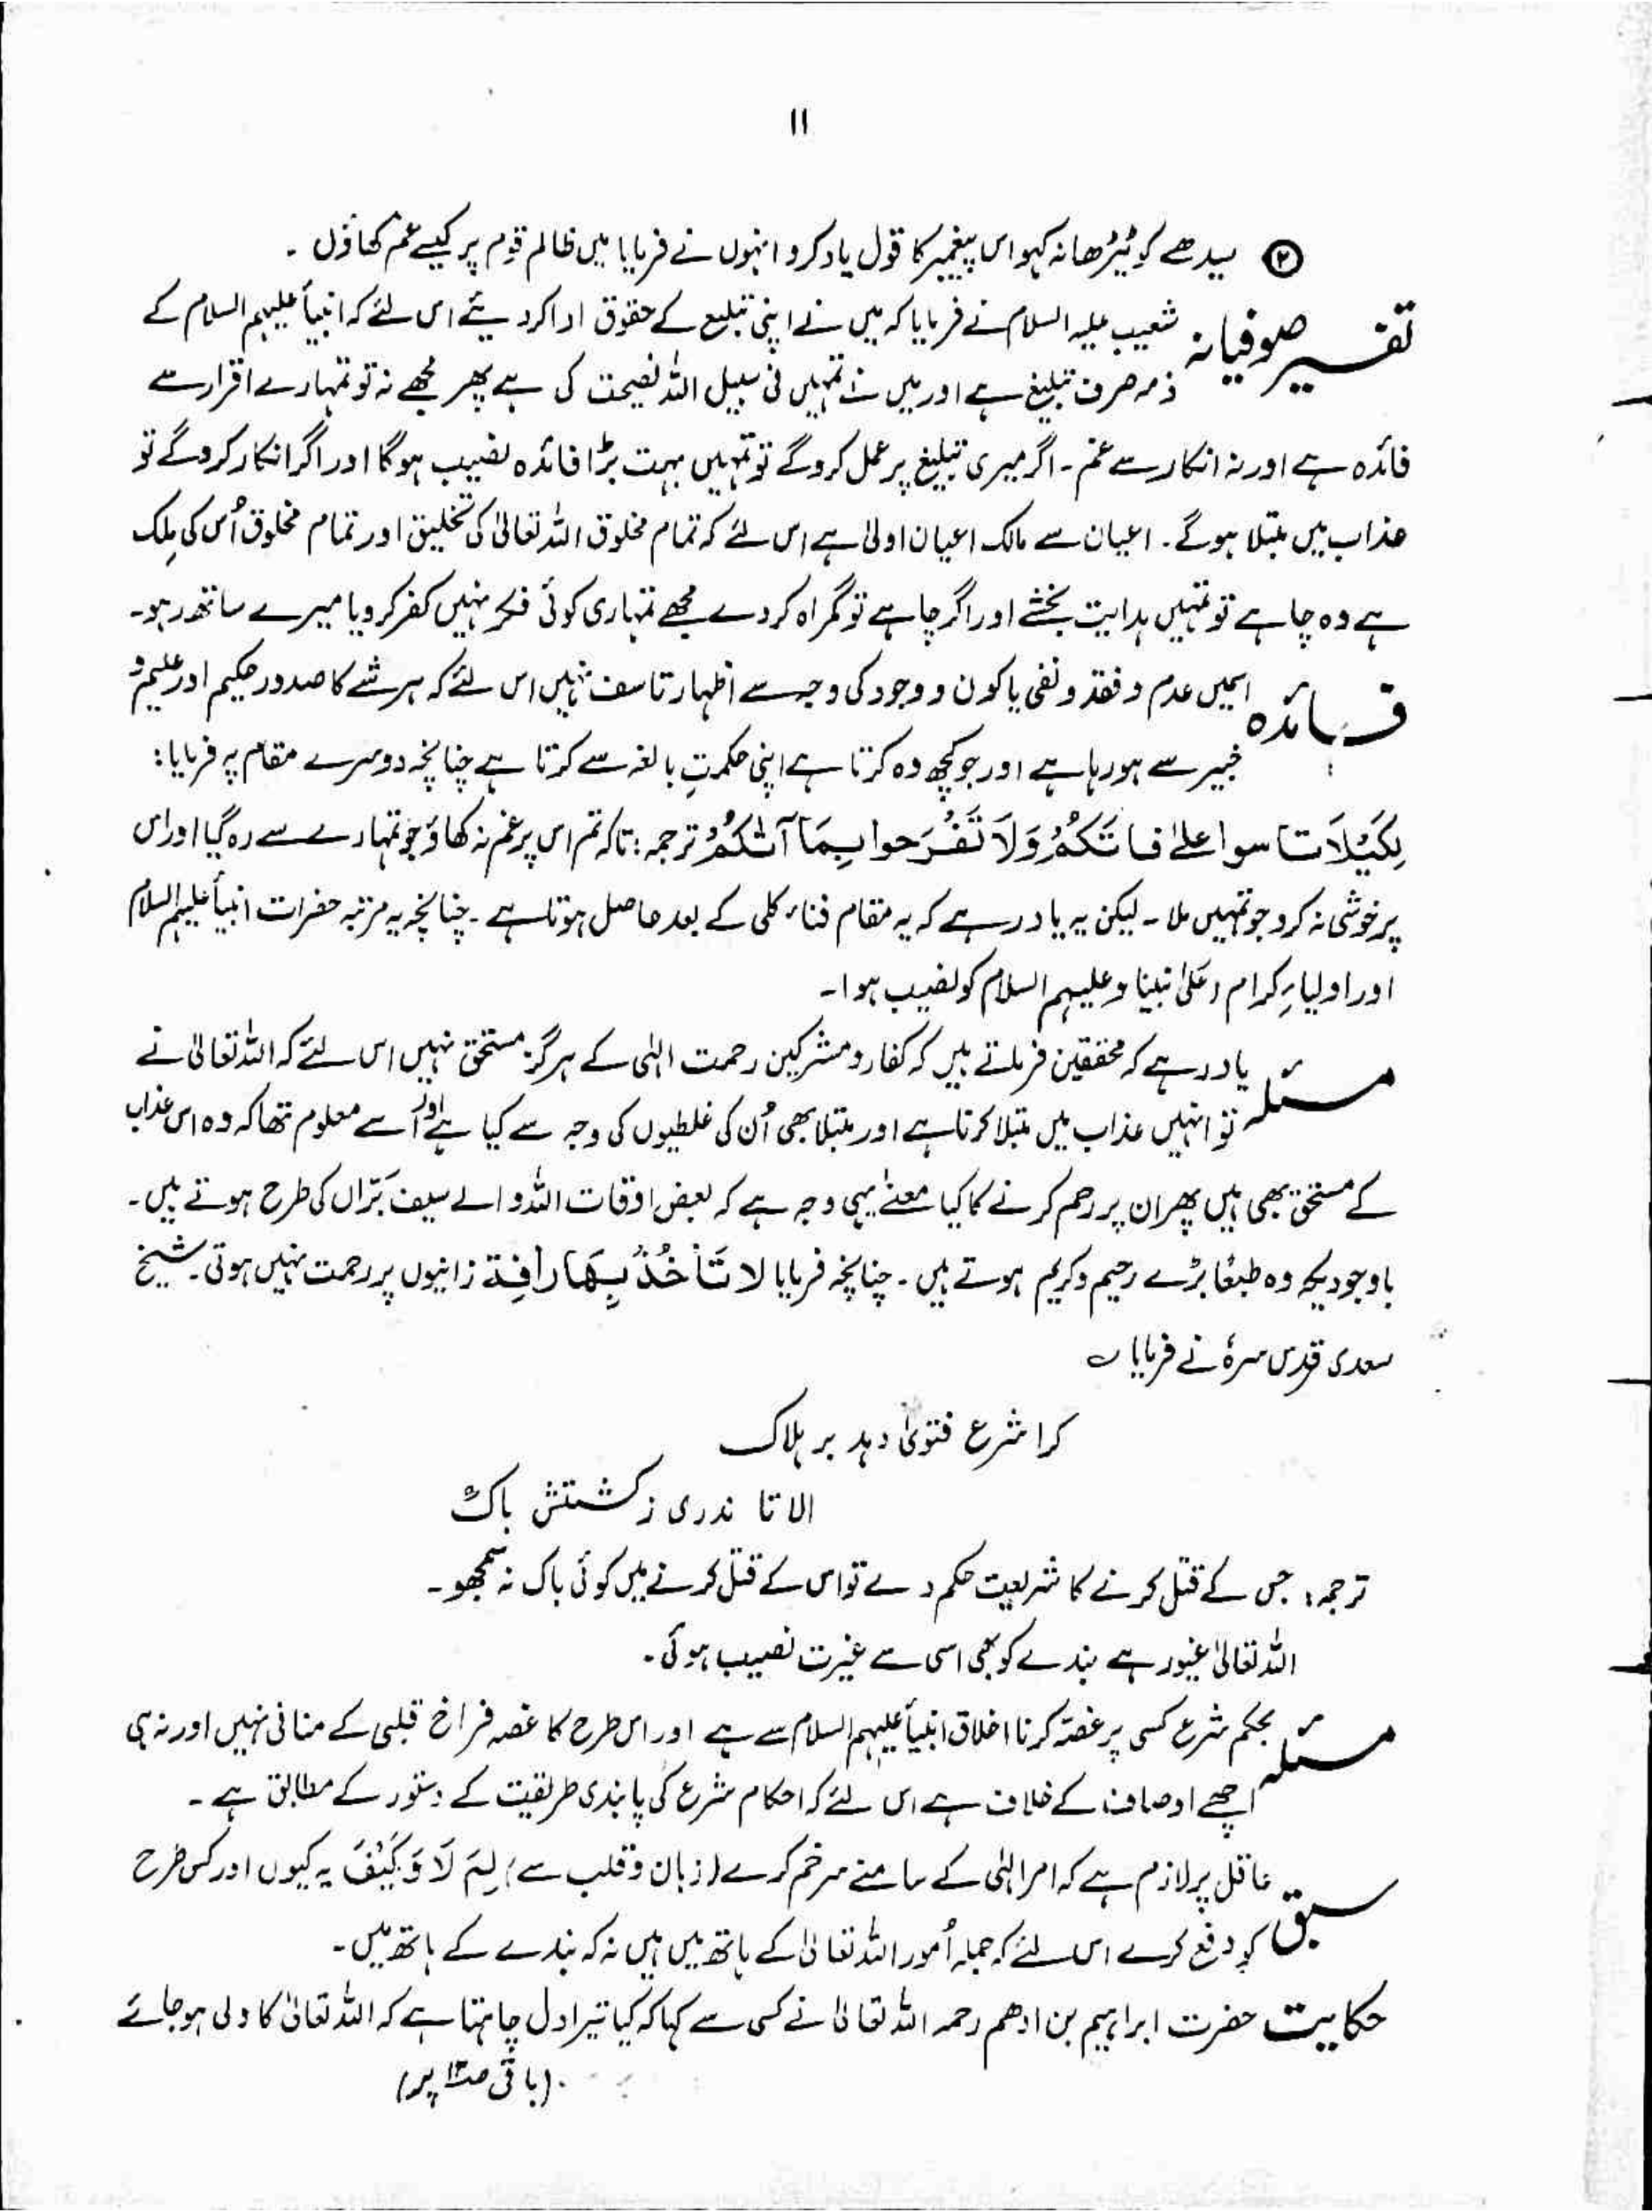 ۱۱
② سیدھے کو ٹیڑھا نہ کہو اس پیغمبر کا قول یاد کرو انہوں نے فرمایا میں ظالم قوم پر کیسے غم کھاؤں ۔
تفسیر صوفیانہ شعیب علیہ السلام نے فرمایا کہ میں نے اپنی تبلیغ کے حقوق ادا کر دیئے اس لئے کہ انبیأ علیہم السلام کے
ذمہ صرف تبلیغ ہے اور میں نے تمہیں فی سبیل اللہ نصیحت کی ہے پھر مجھے نہ تو تمہارے اقرار سے
فائدہ ہے اور نہ انکار سے غم ۔ اگر میری تبلیغ پر عمل کرو گے تو تمہیں بہت بڑا فائدہ نصیب ہوگا اور اگر انکار کرو گے تو
عذاب میں مبتلا ہوگے ۔ اعیان سے مالک اعیان اولیٰ ہے اس لئے کہ تمام مخلوق اللہ تعالیٰ کی تخلیق اور تمام مخلوق اُس کی مِلک
ہے وہ چاہے تو تمہیں ہدایت بخشے اور اگر چاہے تو گمراہ کر دے مجھے تمہاری کوئی فکر نہیں کفر کرو یا میرے ساتھ رہو۔
فائدہ اسمیں عدم و فقد و نفی یا کون و وجود کی وجہ سے اظہار تاسف نہیں اس لئے کہ ہر شے کا صدور حکیم اور علیم و
خبیر سے ہو رہا ہے اور جو کچھ وہ کرتا ہے اپنی حکمتِ بالغہ سے کرتا ہے چنانچہ دوسرے مقام پہ فرمایا :
لِكَيْلَا تاسوا علیٰ فاتَكُمْ وَلَا تَفْرَحوا بِمَا آتٰكُمْ ترجمہ : تاکہ تم اس پر غم نہ کھاؤ جو تمہارے سے رہ گیا اور اس
پر خوشی نہ کرو جو تمہیں ملا ۔ لیکن یہ یاد رہے کہ یہ مقام فناء کلی کے بعد حاصل ہوتا ہے ۔ چنانچہ یہ مرتبہ حضرات انبیأ علیہم السلام
اور اولیاءِ کرام (علیٰ نبینا و علیہم السلام کو نصیب ہوا۔
مسئلہ یاد رہے کہ محققین فرماتے ہیں کہ کفار و مشرکین رحمت الٰہی کے ہرگز مستحق نہیں اس لئے کہ اللہ تعالیٰ نے
تو انہیں عذاب میں مبتلا کرتا ہے اور مبتلا بھی اُن کی غلطیوں کی وجہ سے کیا ہے اور اُسے معلوم تھا کہ وہ اس عذاب
کے مستحق بھی ہیں پھر ان پر رحم کرنے کا کیا معنے یہی وجہ ہے کہ بعض اوقات اللہ والے سیف بَرّاں کی طرح ہوتے ہیں ۔
باوجودیکہ وہ طبعًا بڑے رحیم و کریم ہوتے ہیں ۔ چنانچہ فرمایا لا تَاْخُذْ بِهَا رافة زانیوں پر رحمت نہیں ہوتی ۔ شیخ
سعدی قدس سرہٗ نے فرمایا ؎
کرا شرع فتویٰ دہد بر ہلاک
الا تا نداری ز کشتنش باک
ترجمہ : جس کے قتل کرنے کا شریعت حکم دے تو اس کے قتل کرنے میں کوئی باک نہ سمجھو ۔
اللہ تعالیٰ غیور ہے بندے کو بھی اسی سے غیرت نصیب ہوئی ۔
مسئلہ بحکم شرع کسی پر غصہ کرنا اخلاق انبیأ علیہم السلام سے ہے اور اس طرح کا غصہ فراخ قلبی کے منافی نہیں اور نہ ہی
اچھے اوصاف کے خلاف ہے اس لئے کہ احکام شرع کی پابندی طریقت کے دستور کے مطابق ہے ۔
سبق عاقل پر لازم ہے کہ امر الٰہی کے سامنے سر خم کرے (زبان و قلب سے) لِمَ لَا وَ كَيْفَ یہ کیوں اور کس طرح
کو دفع کرے اس لئے کہ جملہ اُمور اللہ تعالیٰ کے ہاتھ میں ہیں نہ کہ بندے کے ہاتھ میں ۔
حکایت حضرت ابراہیم بن ادھم رحمہ اللہ تعالیٰ نے کسی سے کہا کہ کیا تیرا دل چاہتا ہے کہ اللہ تعالیٰ کا ولی ہو جائے
(باقی پر)